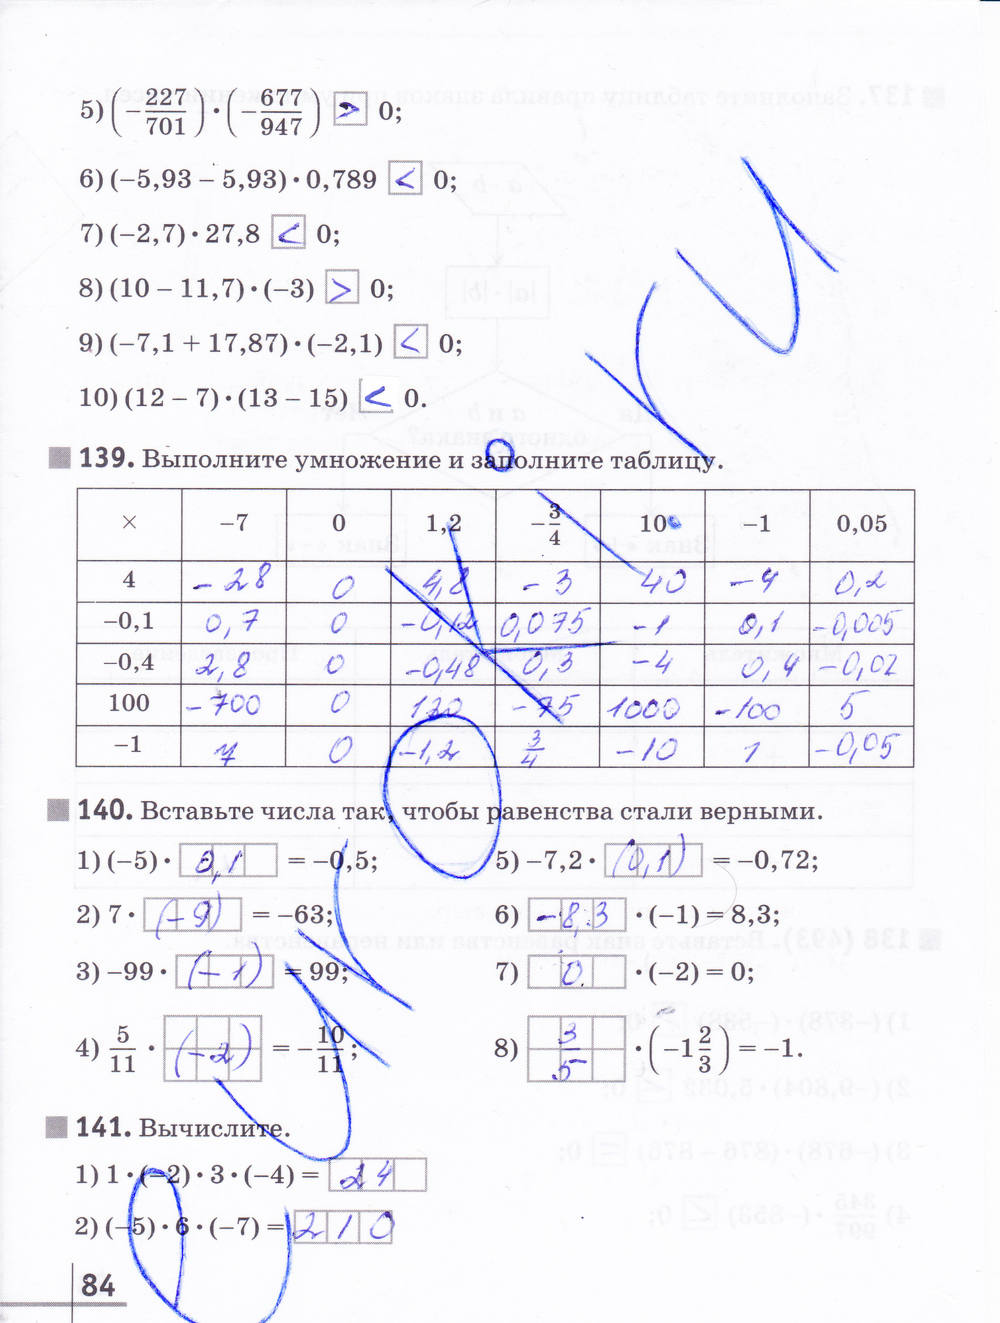 5) (−227/701) · (−677/947) > 0;
6) (−5,93 − 5,93) · 0,789 < 0;
7) (−2,7) · 27,8 < 0;
8) (10 − 11,7) · (−3) > 0;
9) (−7,1 + 17,87) · (−2,1) < 0;
10) (12 − 7) · (13 − 15) < 0.
139. Выполните умножение и заполните таблицу.
× −7 0 1,2 −3/4 10 −1 0,05
4 −28 0 4,8 −3 40 −4 0,2
−0,1 0,7 0 −0,12 0,075 −1 0,1 −0,005
−0,4 2,8 0 −0,48 0,3 −4 0,4 −0,02
100 −700 0 120 −75 1000 −100 5
−1 7 0 −1,2 3/4 −10 1 −0,05
140. Вставьте числа так, чтобы равенства стали верными.
1) (−5) · 0,1 = −0,5; 5) −7,2 · (0,1) = −0,72;
2) 7 · (−9) = −63; 6) −8,3 · (−1) = 8,3;
3) −99 · (−1) = 99; 7) 0 · (−2) = 0;
4) 5/11 · (−2) = −10/11; 8) 3/5 · (−1 2/3) = −1.
141. Вычислите.
1) 1 · (−2) · 3 · (−4) = 24
2) (−5) · 6 · (−7) = 210
84